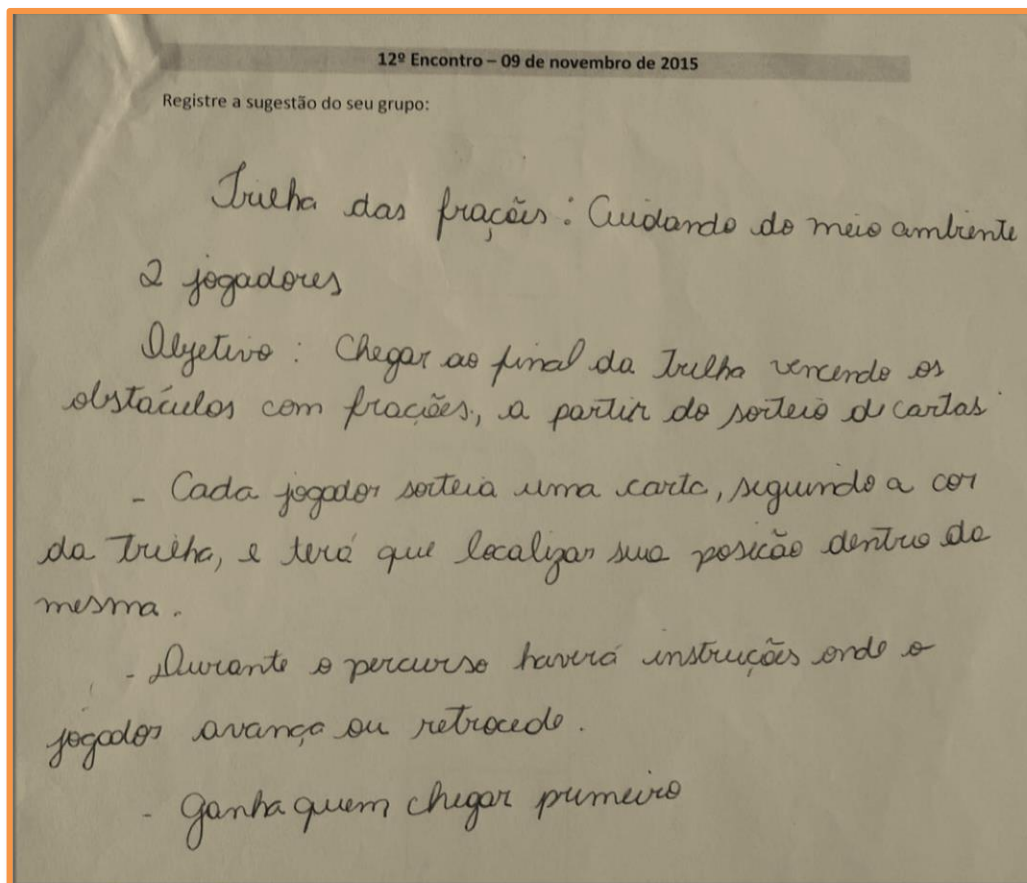 12º Encontro – 09 de novembro de 2015
Registre a sugestão do seu grupo:
Trilha das frações: Cuidando do meio ambiente
2 jogadores
Objetivo: Chegar ao final da Trilha vencendo os
obstáculos com frações, a partir do sorteio de cartas
- Cada jogador sorteia uma carta, seguindo a cor
da Trilha, e terá que localizar sua posição dentro da
mesma.
- Durante o percurso haverá instruções onde o
jogador avança ou retrocede.
- Ganha quem chegar primeiro